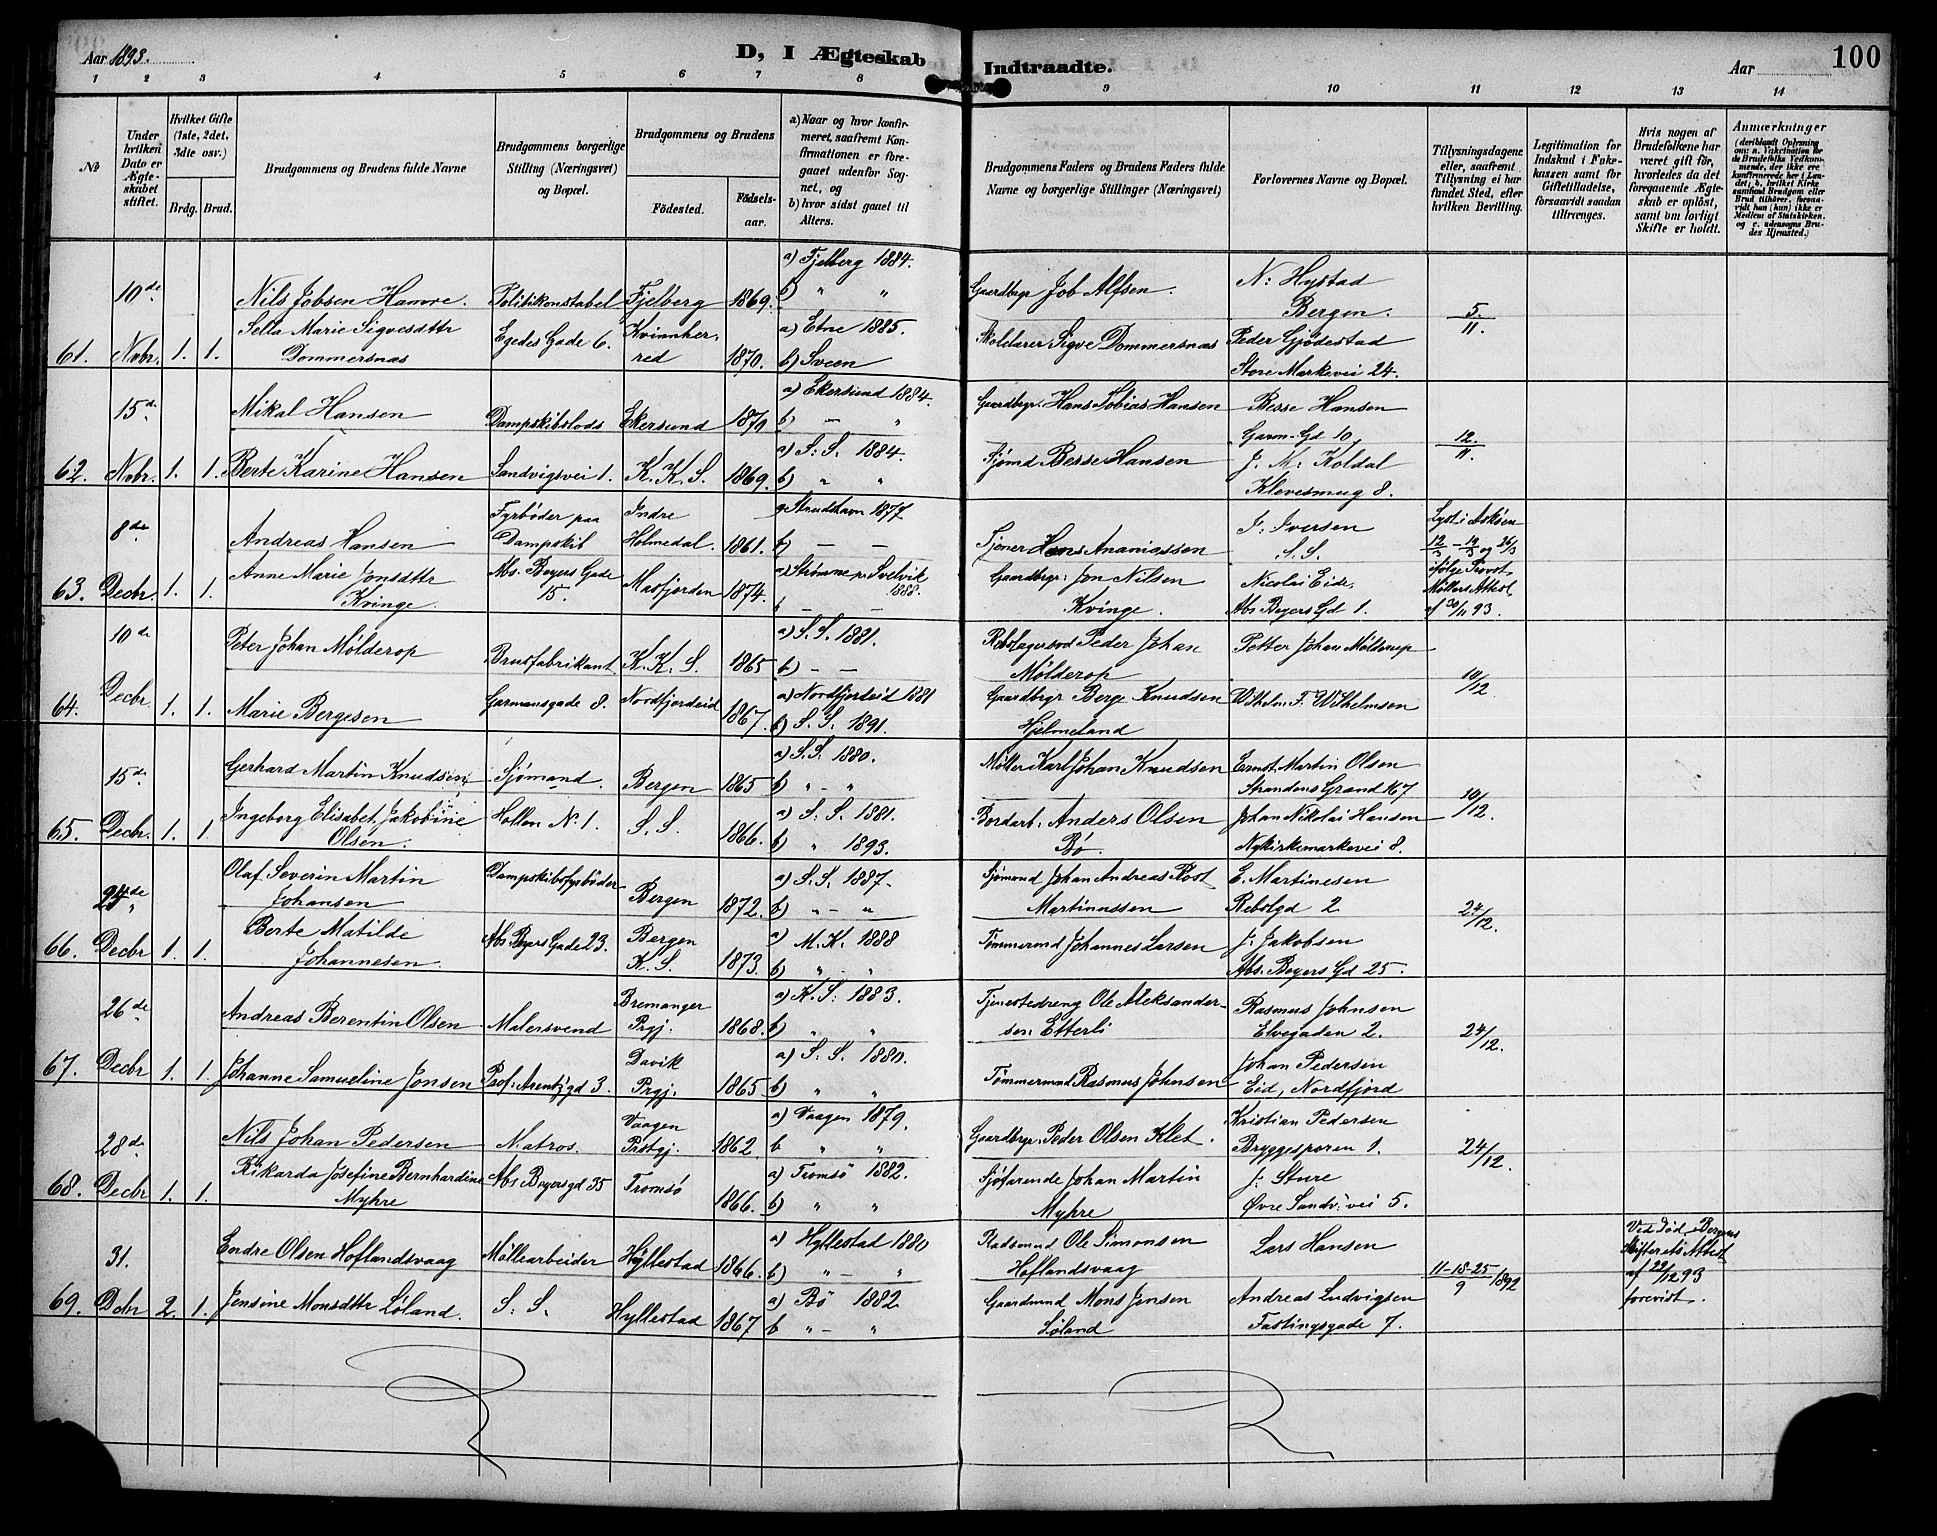 Aar 1893.
D, I Ægteskab Indtraadte.
Aar
100
1 2 3 4 5 6 7 8 9 10 11 12 13 14
No
Under hvilken Dato er Ægteskabet stiftet.
Hvilket Gifte (1ste, 2det, 3die osv.)
Brdg. Brud.
Brudgommens og Brudens fulde Navne
Brudgommens borgerlige Stilling (Næringsvei) og Bopæl.
Brudgommens og Brudens
Födested.
Födselsaar.
a) Naar og hvor konfirmeret, saafremt Konfirmationen er foregaaet udenfor Sognet, og
b) hvor sidst gaaet til Alters.
Brudgommens Faders og Brudens Faders fulde Navne og borgerlige Stillinger (Næringsvei)
Forlovernes Navne og Bopæl.
Tillysningsdagene eller, saafremt Tillysning ei har fundet Sted, efter hvilken Bevilling.
Legitimation for Indskud i Enkekassen samt for Giftetilladelse, forsaavidt saadan tiltrænges.
Hvis nogen af Brudefolkene har været gift för, hvorledes da det foregaaende Ægteskab er oplöst, samt om lovligt Skifte er holdt.
Anmærkninger
61. 10de Novbr. 1. 1.
Nils Jobsen Hamre. Politikonstabel Fjelberg 1869.
a) Fjelberg 1884.
b) " "
Gaardbrgr Job Alfsen.
N: Hystad
Bergen.
5./11.
Sella Marie Sigvesdttr
Dommersnas
Egedes Gade 6. Kvinnherred 1870.
a) Etne 1885.
b) Sveen
Skolelærer Sigve Dommersnas
Peder Gjödestad
Store Markevei 24.
62. 15de Novbr. 1. 1.
Mikal Hansen Dampskibslods Ekersund 1870
a) Ekersund 1884.
b) — "
Gaardbrgr. Hans Tobias Hansen
Besse Hansen
Garm. Gd 10,
12./11.
Berte Karine Hansen Sandvigsvei 1. K. K. S. 1869.
a) S. S. 1884.
b) " "
Sjömd Besse Hansen
J. M. Koldal
Klevesmug 8.
63. 8de Decbr. 1. 1.
Andreas Hansen
Fyrböder paa
Dampskib
Indre
Holmedal. 1861.
b) — —
Tjener Hans Ananiassen
I. Iversen
S. S.
Anne Marie Jonsdttr
Kvinge.
Abs. Beyers Gade
15.
Masfjorden 1874.
a) Strömme pr Svelvik
1888.
Gaardbrgr. Jon Nilsen
Kvinge.
Nicolai Eide,
Abs Beyers Gd 1.
Lyst i Askøen
ifölge Provst
Möllers Attest
af 30/11 93.
64. 10de Decbr. 1. 1.
Peter Johan Mölderop Brusfabrikant K. K. S. 1865
a) S. S. 1881.
b) — —
Peder Johan
Mölderop
Petter Johan Mölderup
10/12.
Marie Bergesen Garmansgade 8. Nordfjordeid 1867.
a) Nordfjordeid 1881
b) S. S. 1891.
Gaardbrgr Berge Knudsen
Hjelmeland
Wilhelm F. Wilhelmsen
65. 15de Decbr. 1. 1.
Gerhard Martin Knudsen Sjömand. Bergen 1865
a) S. S. 1880.
b) " - "
Möller Karl Johan Knudsen
Ernst Martin Olsen
Strandens Grand 167
10/12.
Ingeborg Elisabet Jakobine
Olsen.
Hollen No. 1. S. S. 1866.
a) S. S. 1881.
b) " 1893.
Bordarb. Anders Olsen
Bö.
Johan Nikolai Hansen
Nykirkemarkevei 8.
66. 24de Decbr 1. 1.
Olaf Severin Martin
Johansen
Dampskibsfyrböder Bergen 1872.
a) S. S. 1887.
b) " - "
Sjömand Johan Andreas Rost
Martinussen
E. Martinesen
Rebslgd 2
24/12.
Berte Matilde
Johannesen.
Abs. Beyers Gade 23.
Bergen
K. S. 1873.
a) M. K. 1888
b) " - "
Tömmermd Johannes Larsen
J. Jakobsen
Abs. Beyers Gd 25.
67. 26de Decbr 1. 1.
Andreas Berentin Olsen Malersvend
Bremanger
Prgj. 1868.
a) K. S. 1883.
b) " "
Tjenestedreng Ole Aleksandersen
Etterli
Rasmus Johnsen
Elvegaden 2.
24/12.
Johanne Samueline Jonsen Prof. Arentzgd 3.
Davik
Prgj. 1865
a) S. S. 1880.
b) " "
Tömmermand Rasmus Johnsen
Johan Pedersen
Eid, Nordfjord
68. 28de Decbr 1. 1.
Nils Johan Pedersen Matros.
Vaagen
Prstgj. 1862.
a) Vaagen 1879.
b " "
Gaardbrgr. Peder Olsen Klet.
Kristian Pedersen
Bryggesporen 1.
24/12.
Rikarda Josefine Bernhardine
Myhre
Abs Beyersgd 35 Tromsö 1866.
a) Tromsö 1882.
b) " "
Sjöfarende Johan Martin
Myhre
J: Sture
Övre Sandv. vei 5.
69. 31. Dcbr 2. 1.
Endre Olsen Hoflandsvaag Möllearbeider Hyllestad 1866.
a) Hyllestad 1880
b) " — "
Pladsmnd Ole Simonsen
Hoflandsvaag
Lars Hansen
11-18-25/9 1892
Ved Död, Bergens
Skifterets Attest
af 29/12 93
forevist.
Jensine Monsdttr Löland. S. S. Hyllestad 1867
a) Bö 1882
b " — "
Gaardmnd Mons Jensen
Löland
Andreas Ludvigsen
Fastingsgade 7.